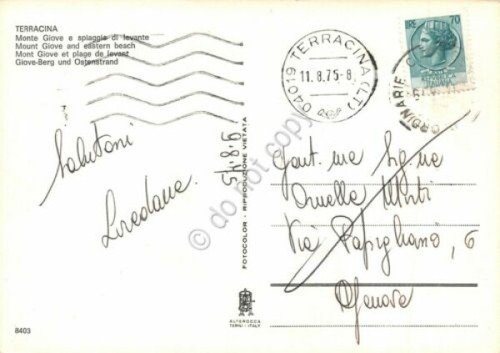 TERRACINA
Monte Giove e spiaggia di levante
Mount Giove and eastern beach
Mont Giove et plage de levant
Giove-Berg und Ostenstrand
04019 TERRACINA (LT)
11.8.75-8
LIRE 70
ORDINARIE
Saluti
Loredana
9/8/75
FOTOCOLOR - RIPRODUZIONE VIETATA
© do not copy
Gent.me Sig.ne
Ornella
Via 6
Genova
ALTEROCCA
TERNI - ITALY
8403